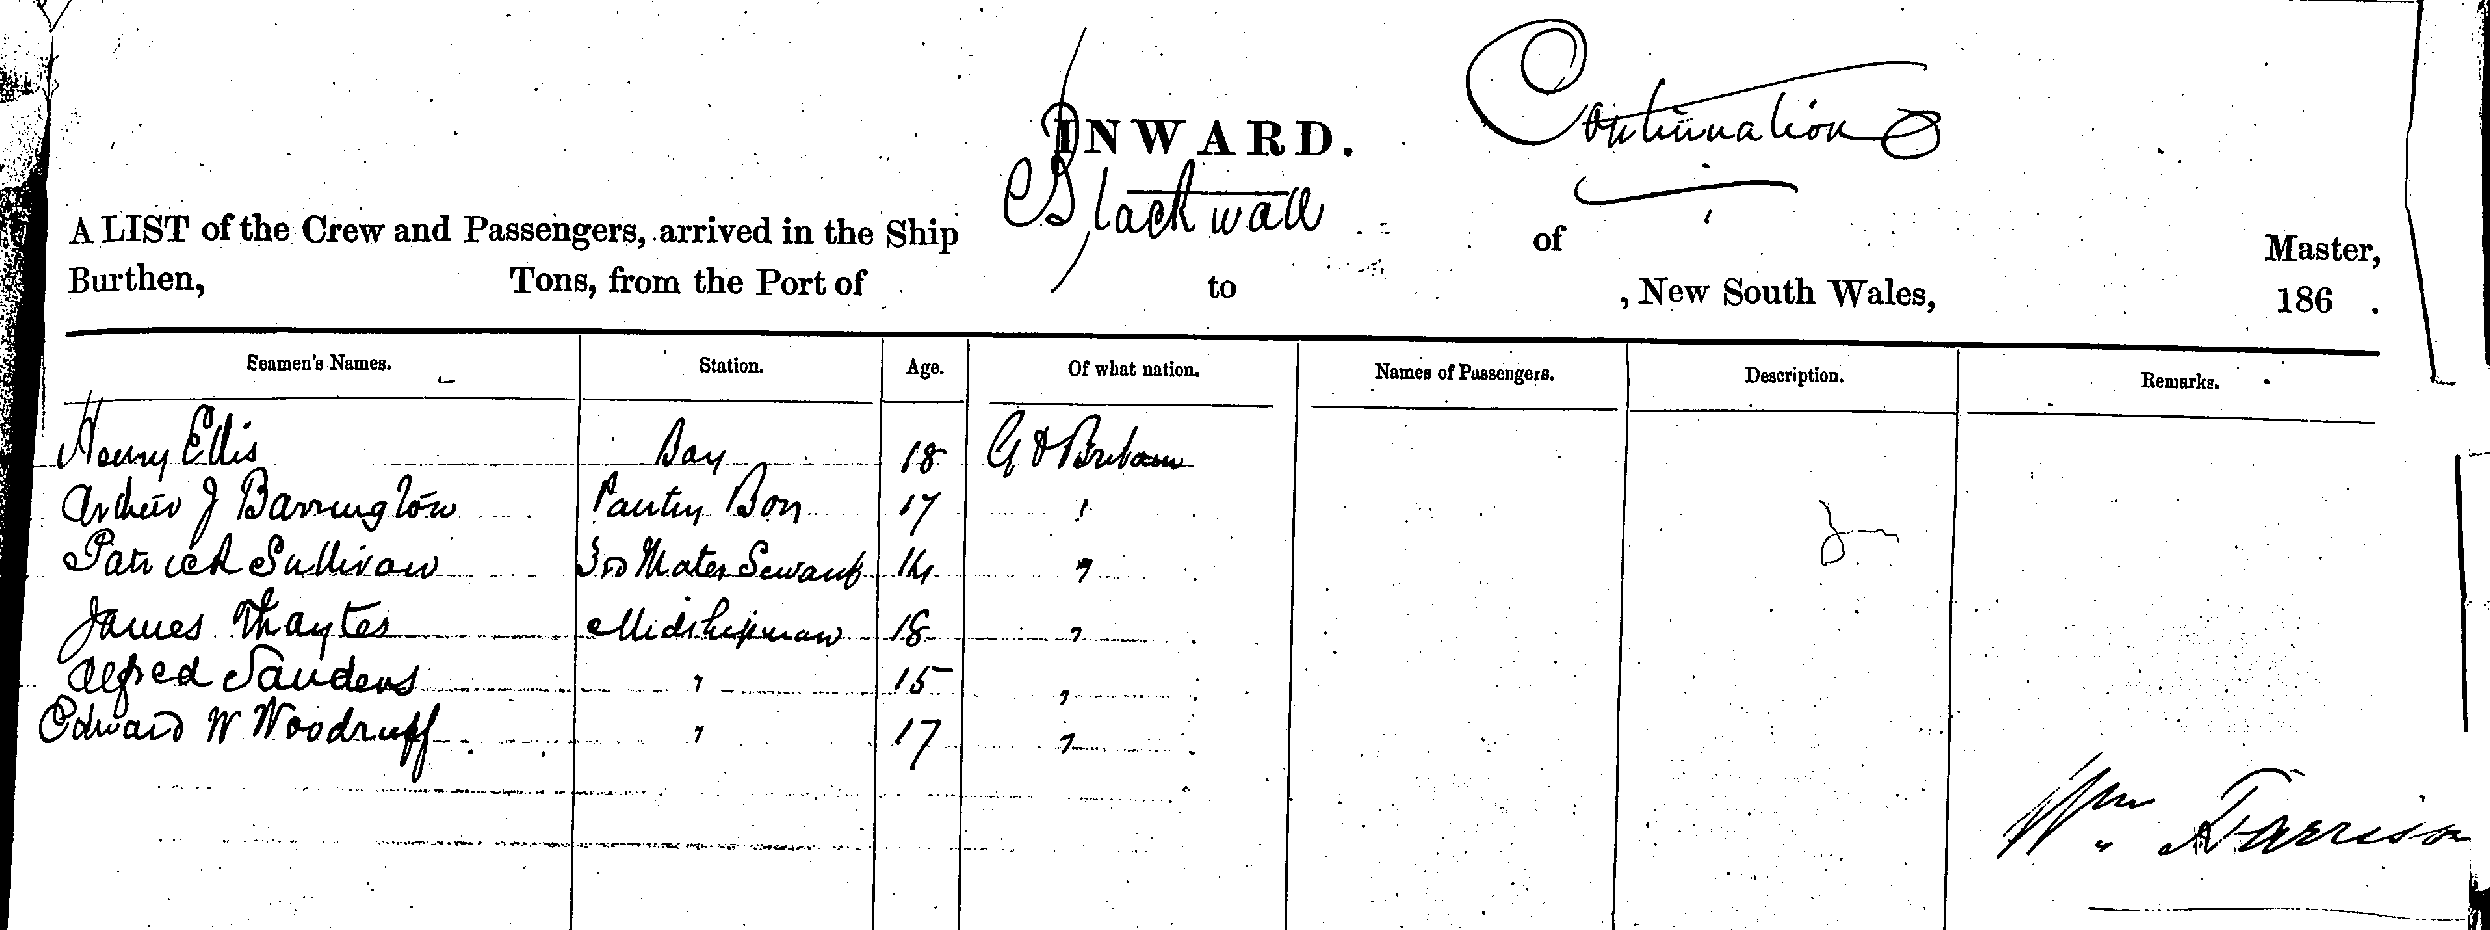 Continuation
INWARD.
A LIST of the Crew and Passengers, arrived in the Ship Blackwall of Master,
Burthen, Tons, from the Port of to , New South Wales, 186 .
Seamen's Names. Station. Age. Of what nation. Names of Passengers. Description. Remarks.
Henry Ellis Boy 18 Gt Britain
Arthur J Barrington Pantry Boy 17 "
Patrick Sullivan 3rd Mates Servant 14 "
James Thaytes Midshipman 18 "
Alfred Sanders " 15 "
Edward W Woodruff " 17 "
Wm Harrison